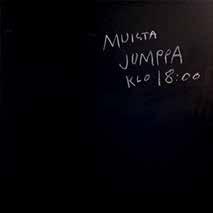 MUISTA
JUMPPA
KLO 18:00